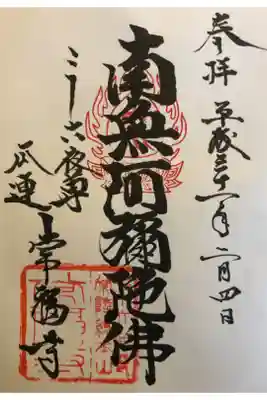 奉拝 平成三十一年二月四日
南無阿彌陀佛
二十六夜尊
瓜連
常福寺